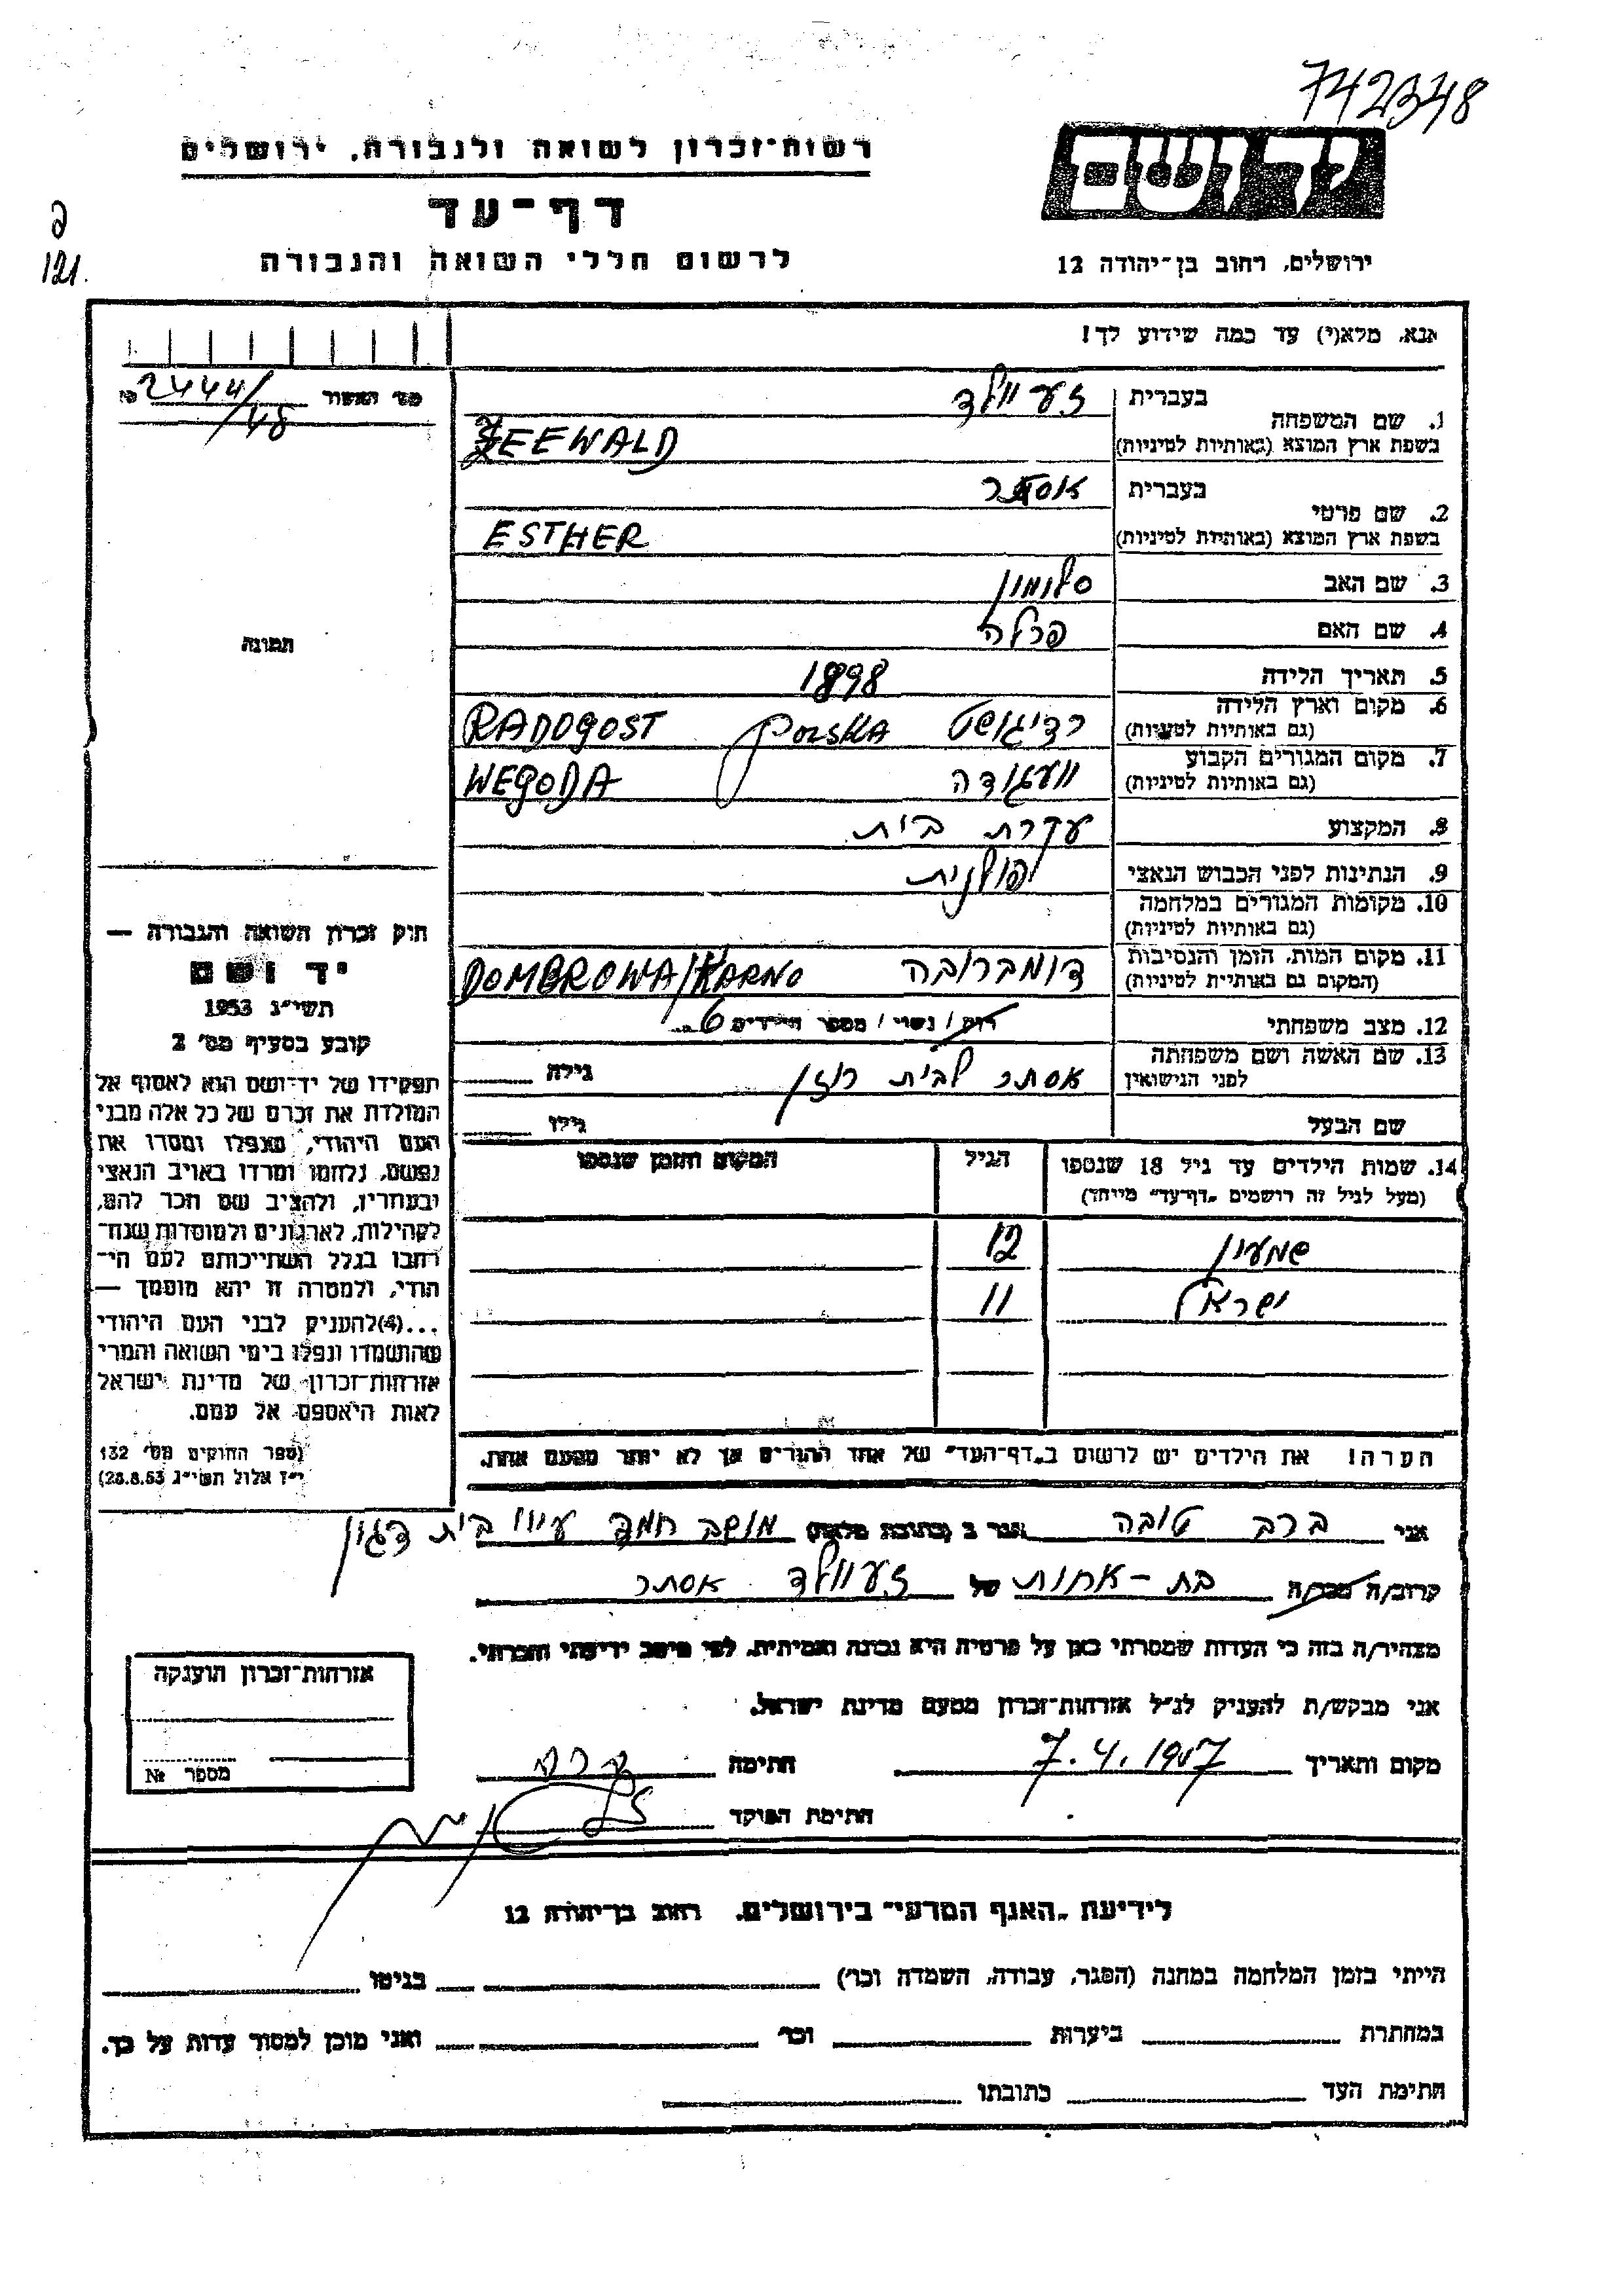 742348
רשות-זכרון לשואה ולגבורה, ירושלים
דף-עד
לרשום חללי השואה והגבורה
121.
יד ושם
ירושלים, רחוב בן-יהודה 12
אנא, מלא(י) עד כמה שידוע לך!
מס' האשור № 2444/48
1. שם המשפחה
בעברית זעוולד
בשפת ארץ המוצא (באותיות לטיניות) ZEEWALD
2. שם פרטי
בעברית אסתר
בשפת ארץ המוצא (באותיות לטיניות) ESTHER
3. שם האב סלומון
4. שם האם פרלה
5. תאריך הלידה 1898
6. מקום וארץ הלידה
(גם באותיות לטיניות) רדיגושט POLSKA RADOGOST
7. מקום המגורים הקבוע
(גם באותיות לטיניות) וועגודה WEGODA
8. המקצוע עקרת בית
9. הנתינות לפני הכבוש הנאצי פולנית
10. מקומות המגורים במלחמה
(גם באותיות לטיניות)
11. מקום המות, הזמן והנסיבות
(המקום גם באותיות לטיניות) דומברובה DOMBROWA/KARNO
12. מצב משפחתי רוק / נשוי / מספר הילדים 6
13. שם האשה ושם משפחתה
לפני הנישואין אסתר לבית רוזן גילה
שם הבעל גילו
14. שמות הילדים עד גיל 18 שנספו
(מעל לגיל זה רושמים "דף-עד" מיוחד)
הגיל
המקום והזמן שנספו
שמעון 12
ישראל 11
הערה! את הילדים יש לרשום ב"דף-העד" של אחד ההורים אך לא יותר מפעם אחת.
תמונה
חוק זכרון השואה והגבורה —
יד ושם
תשי"ג 1953
קובע בסעיף מס' 2
תפקידו של יד-ושם הוא לאסוף אל
המולדת את זכרם של כל אלה מבני
העם היהודי, שנפלו ומסרו את
נפשם, נלחמו ומרדו באויב הנאצי
ובעוזריו, ולהציב שם וזכר להם,
לקהילות, לארגונים ולמוסדות שנח-
רבו בגלל השתייכותם לעם הי-
הודי, ולמטרה זו יהא מוסמך —
...(4) להעניק לבני העם היהודי
שהושמדו ונפלו בימי השואה והמרי
אזרחות-זכרון של מדינת ישראל
לאות היאספם אל עמם.
(ספר החוקים מס' 132
י"ז אלול תשי"ג 28.8.53)
אני ברב טובה הגר ב (כתובת מלאה) מושב חמד עיוו בית דגון
קרוב/ה מכר/ה בת-אחות של זעוולד אסתר
מצהיר/ה בזה כי העדות שמסרתי כאן על פרטיה היא נכונה ואמיתית, לפי מיטב ידיעתי והכרתי.
אני מבקש/ת להעניק לנ"ל אזרחות-זכרון מטעם מדינת ישראל.
מקום ותאריך 7.4.1957 חתימה ברב
חתימת הפוקד
אזרחות-זכרון הוענקה
מספר №
לידיעת "האגף המדעי" בירושלים, רחוב בן-יהודה 12
הייתי בזמן המלחמה במחנה (הסגר, עבודה, השמדה וכו') בגיטו
במחתרת ביערות וכו' ואני מוכן למסור עדות על כך.
חתימת העד כתובתו